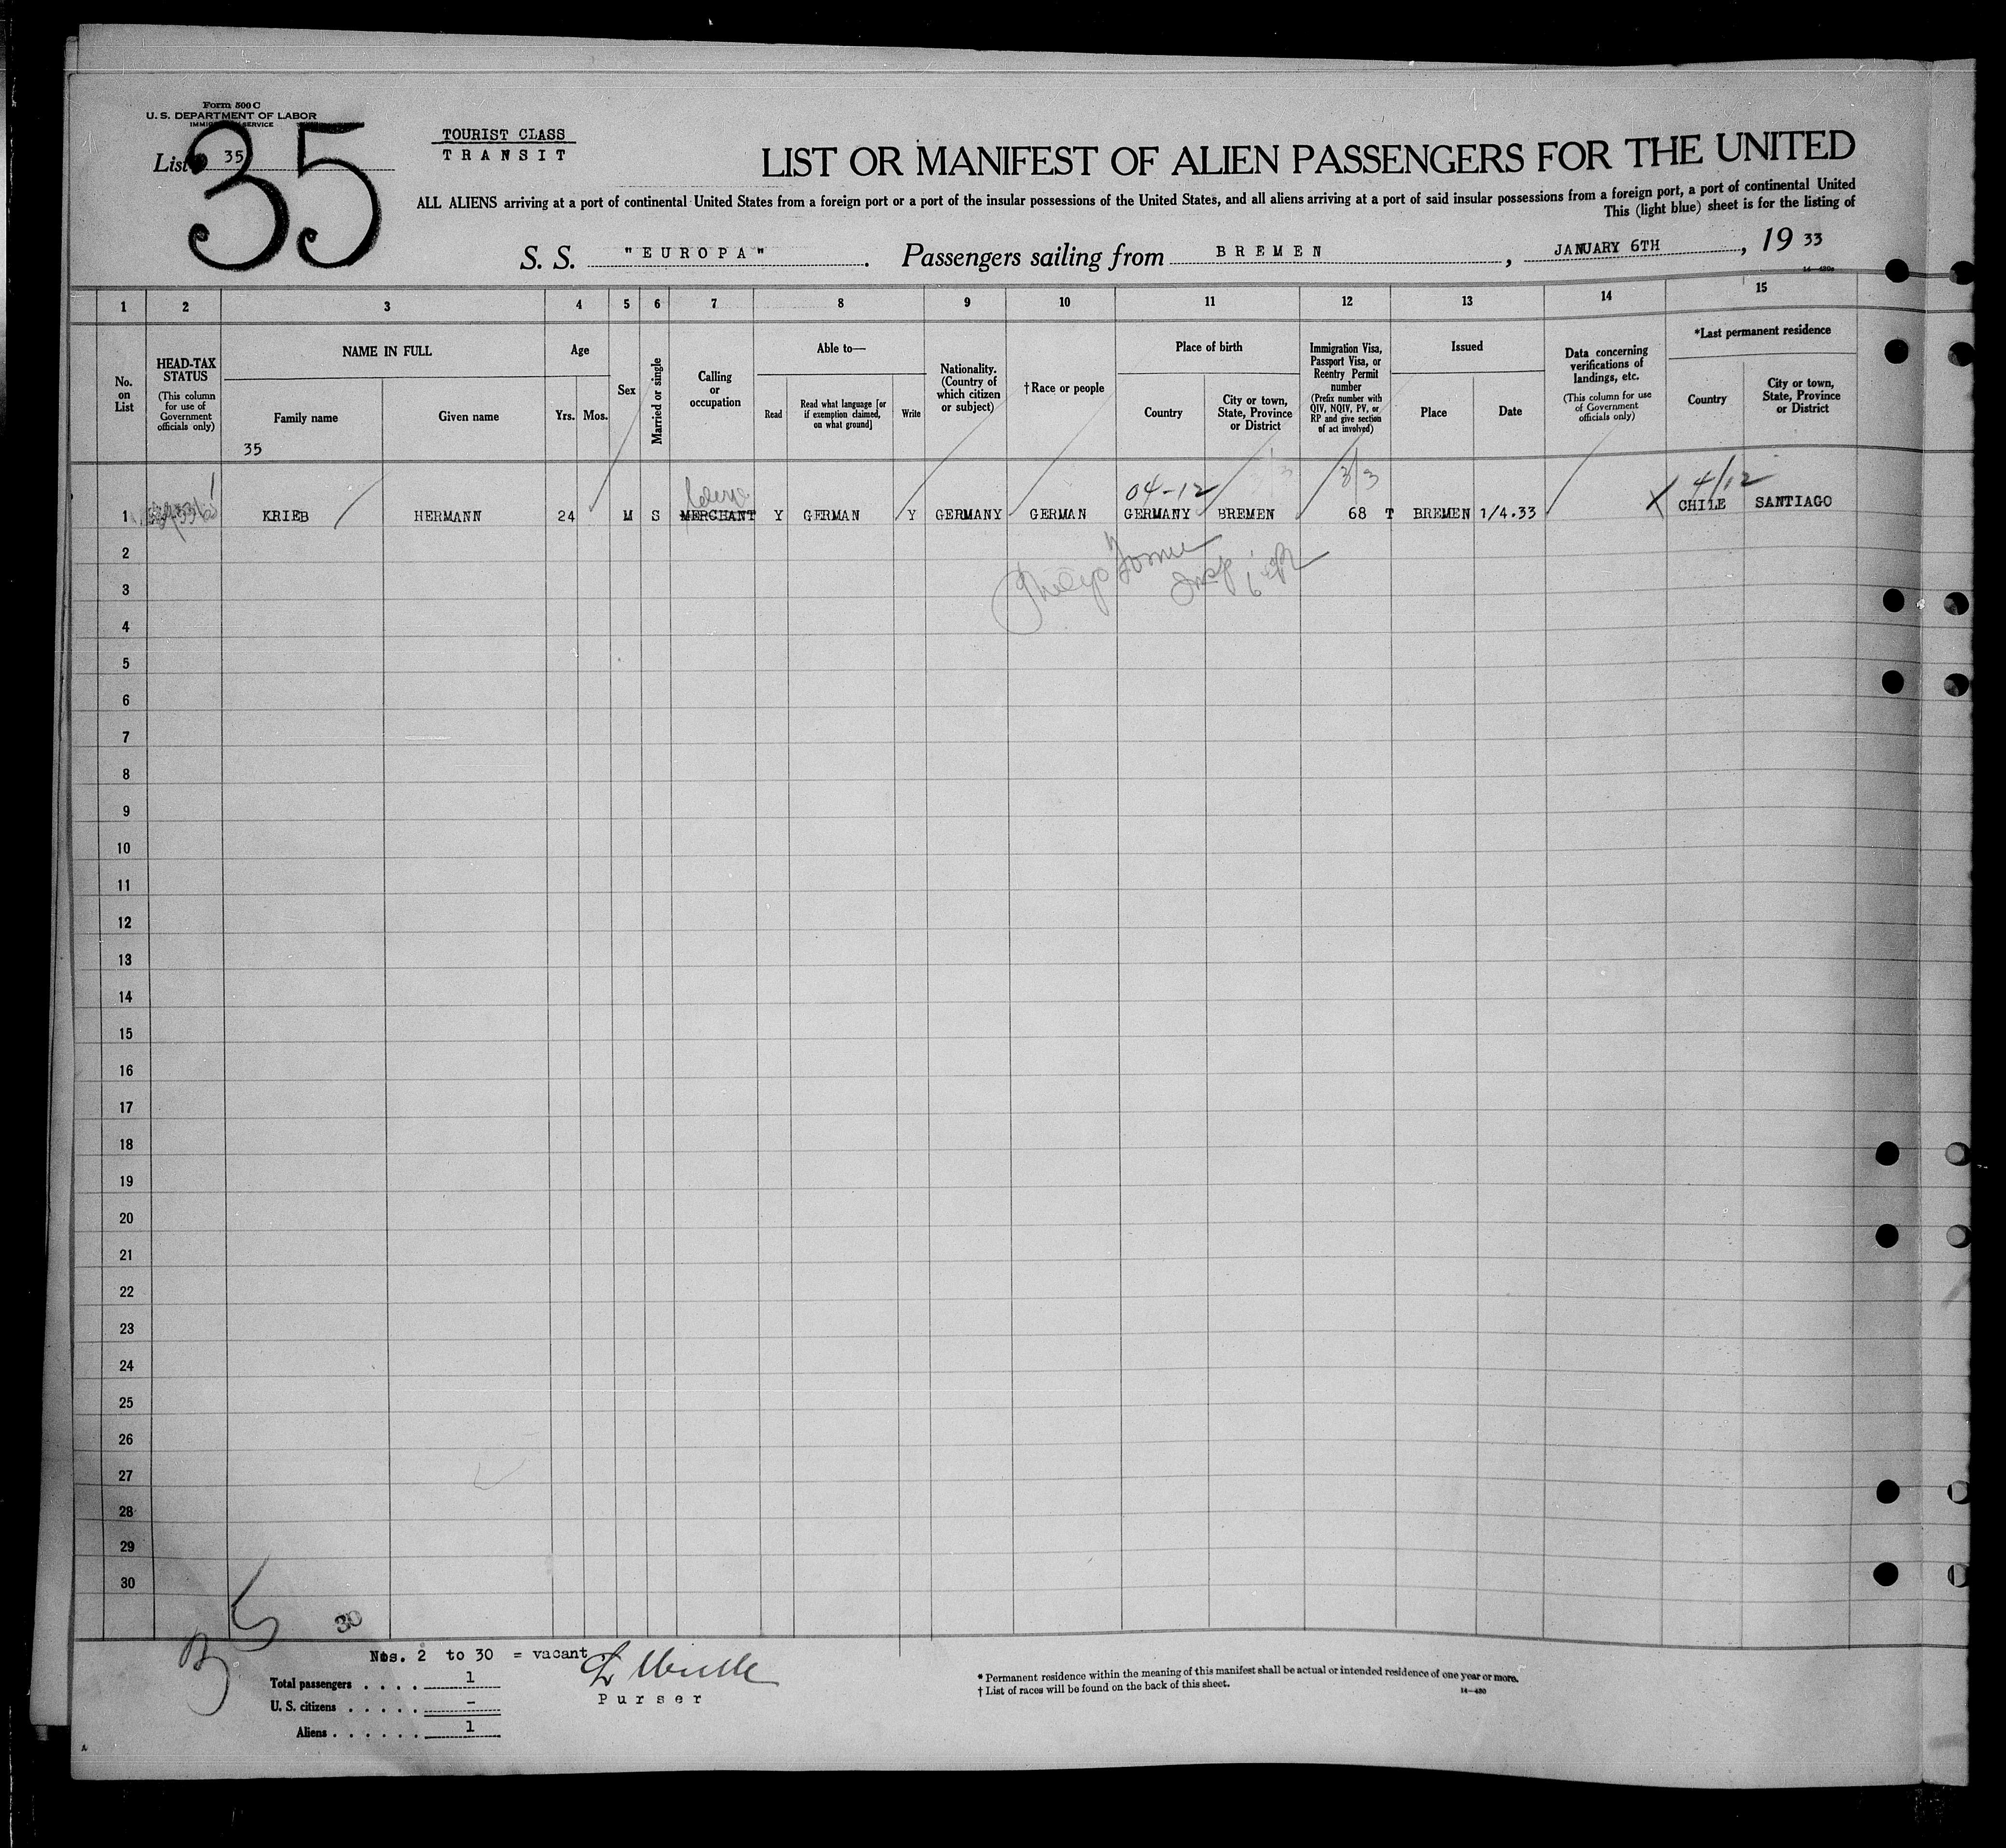 Form 500 C
U. S. DEPARTMENT OF LABOR
IMMIGRATION SERVICE
35
List 35
TOURIST CLASS
TRANSIT
LIST OR MANIFEST OF ALIEN PASSENGERS FOR THE UNITED
ALL ALIENS arriving at a port of continental United States from a foreign port or a port of the insular possessions of the United States, and all aliens arriving at a port of said insular possessions from a foreign port, a port of continental United
This (light blue) sheet is for the listing of
S. S. "EUROPA". Passengers sailing from BREMEN, JANUARY 6TH, 19 33
14—430a
1 2 3 4 5 6 7 8 9 10 11 12 13 14 15
No. on List
HEAD-TAX STATUS
(This column for use of Government officials only)
NAME IN FULL
Family name
Given name
35
Age
Yrs. Mos.
Sex
Married or single
Calling or occupation
Able to—
Read
Read what language [or if exemption claimed, on what ground]
Write
Nationality. (Country of which citizen or subject)
†Race or people
Place of birth
Country
City or town, State, Province or District
Immigration Visa, Passport Visa, or Reentry Permit number
(Prefix number with QIV, NQIV, PV, or RP and give section of act involved)
Issued
Place
Date
Data concerning verifications of landings, etc.
(This column for use of Government officials only)
*Last permanent residence
Country
City or town, State, Province or District
04-12 3/3 4/12
1 KRIEB HERMANN 24 M S MERCHANT Y GERMAN Y GERMANY GERMAN GERMANY BREMEN 68 T BREMEN 1/4.33 X CHILE SANTIAGO
2
3
4
5
6
7
8
9
10
11
12
13
14
15
16
17
18
19
20
21
22
23
24
25
26
27
28
29
30
30
Nos. 2 to 30 = vacant
Total passengers . . . . 1
U. S. citizens . . . . . –
Aliens . . . . . . 1
Purser
* Permanent residence within the meaning of this manifest shall be actual or intended residence of one year or more.
† List of races will be found on the back of this sheet.
14—430